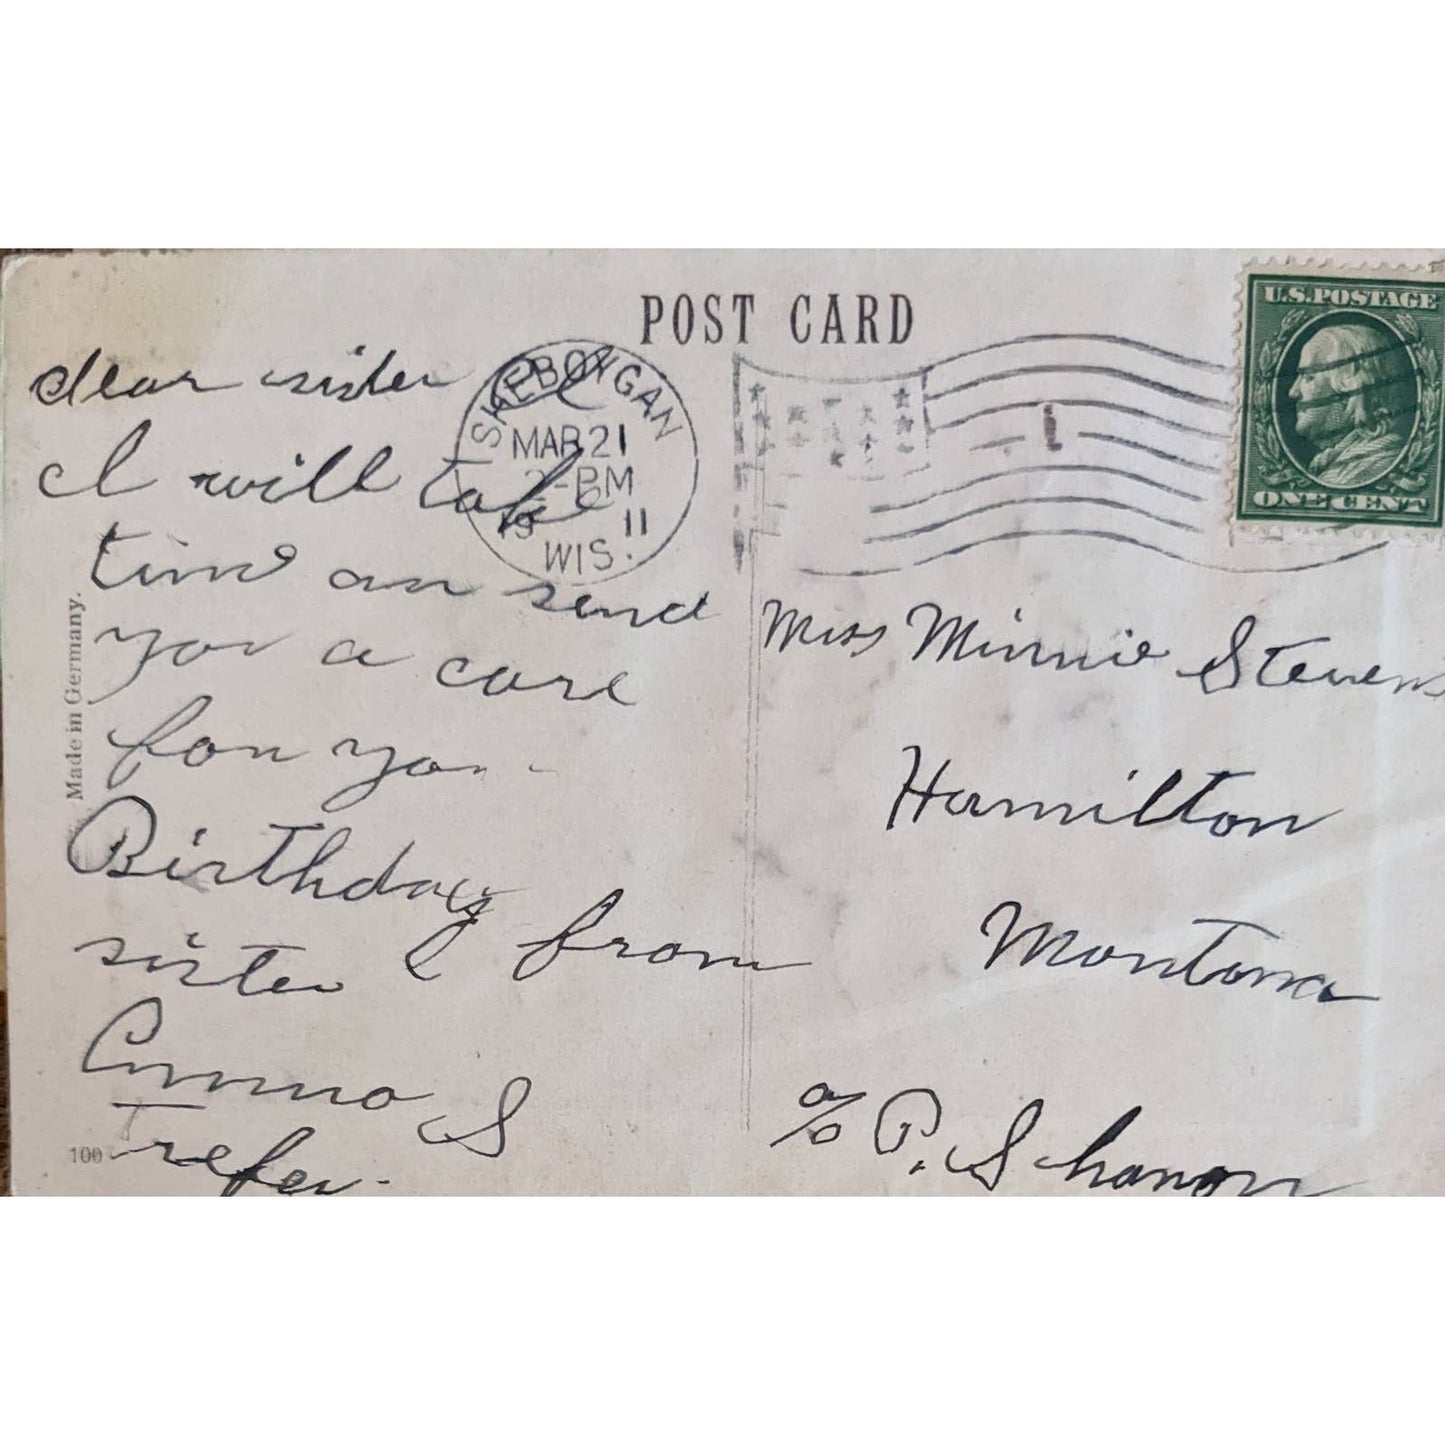 POST CARD
U.S. POSTAGE
ONE CENT
SHEBOYGAN
MAR 21
2-PM
19 11
WIS.
1
dear sister
I will take
time an send
you a care
for you
Birthday
sister from
S
Trefer.
Miss Minnie Stevens
Hamilton
Montana
% P. Schanon
Made in Germany.
100